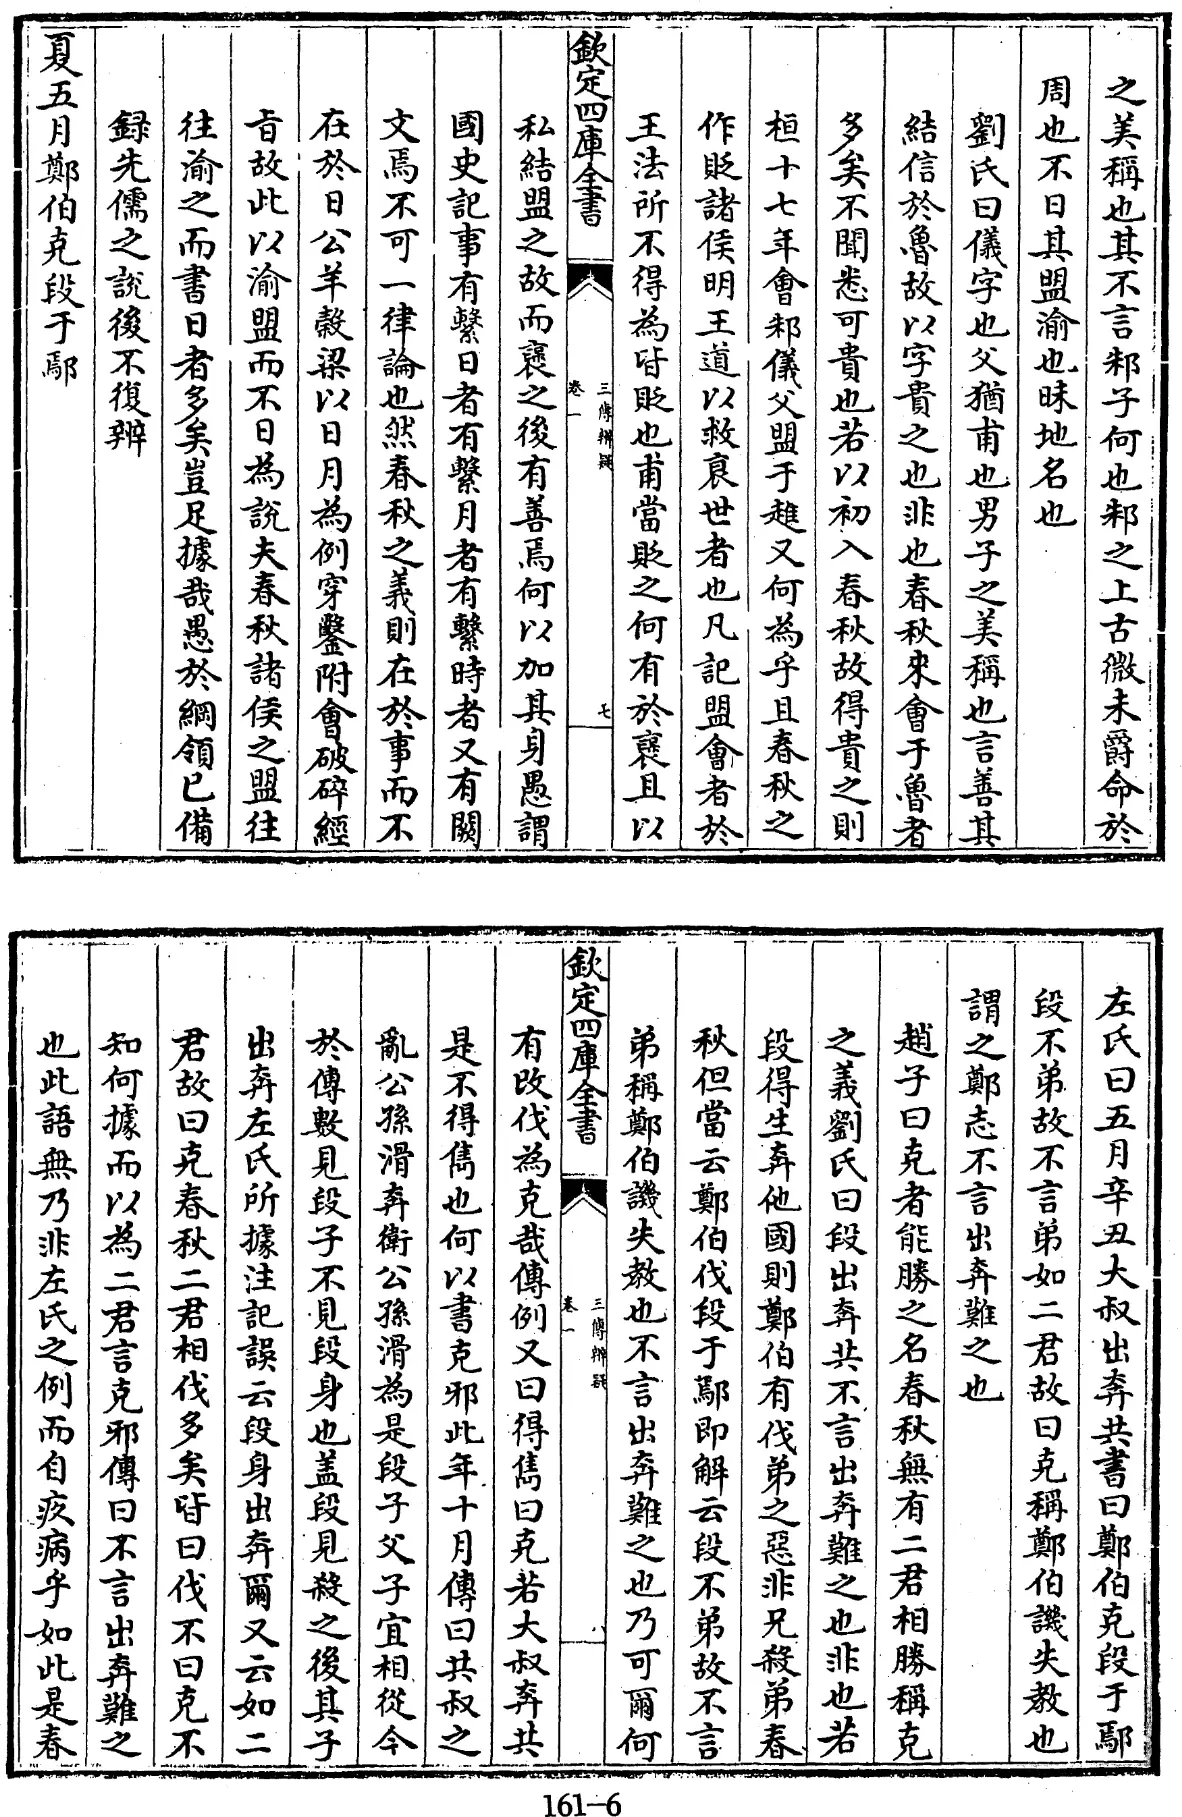 之美稱也其不言邾子何也邾之上古微未爵命於
周也不日其盟渝也眛地名也
劉氏曰儀字也父猶甫也男子之美稱也言善其
結信於魯故以字貴之也非也春秋來會于魯者
多矣不聞悉可貴也若以初入春秋故得貴之則
桓十七年會邾儀父盟于趡又何為乎且春秋之
作貶諸侯明王道以救衰世者也凡記盟會者於
王法所不得為皆貶也甫當貶之何有於襃且以
欽定四庫全書
三傳辨疑
卷一
七
私結盟之故而襃之後有善焉何以加其身愚謂
國史記事有繫日者有繫月者有繫時者又有闕
文焉不可一律論也然春秋之義則在於事而不
在於日公羊穀梁以日月為例穿鑿附會破碎經
旨故此以渝盟而不日為說夫春秋諸侯之盟往
往渝之而書日者多矣豈足據哉愚於綱領已備
録先儒之説後不復辨
夏五月鄭伯克段于鄢
左氏曰五月辛丑大叔出奔共書曰鄭伯克段于鄢
段不弟故不言弟如二君故曰克稱鄭伯譏失教也
謂之鄭志不言出奔難之也
趙子曰克者能勝之名春秋無有二君相勝稱克
之義劉氏曰段出奔共不言出奔難之也非也若
段得生奔他國則鄭伯有伐弟之惡非兄殺弟春
秋但當云鄭伯伐段于鄢即解云段不弟故不言
弟稱鄭伯譏失教也不言出奔難之也乃可爾何
欽定四庫全書
三傳辨疑
卷一
八
有改伐為克哉傳例又曰得雋曰克若大叔奔共
是不得雋也何以書克邪此年十月傳曰共叔之
亂公孫滑奔衛公孫滑為是段子父子宜相從今
於傳數見段子不見段身也盖段見殺之後其子
出奔左氏所據注記誤云段身出奔爾又云如二
君故曰克春秋二君相伐多矣皆曰伐不曰克不
知何據而以為二君言克邪傳曰不言出奔難之
也此語無乃非左氏之例而自疚病乎如此是春
161-6